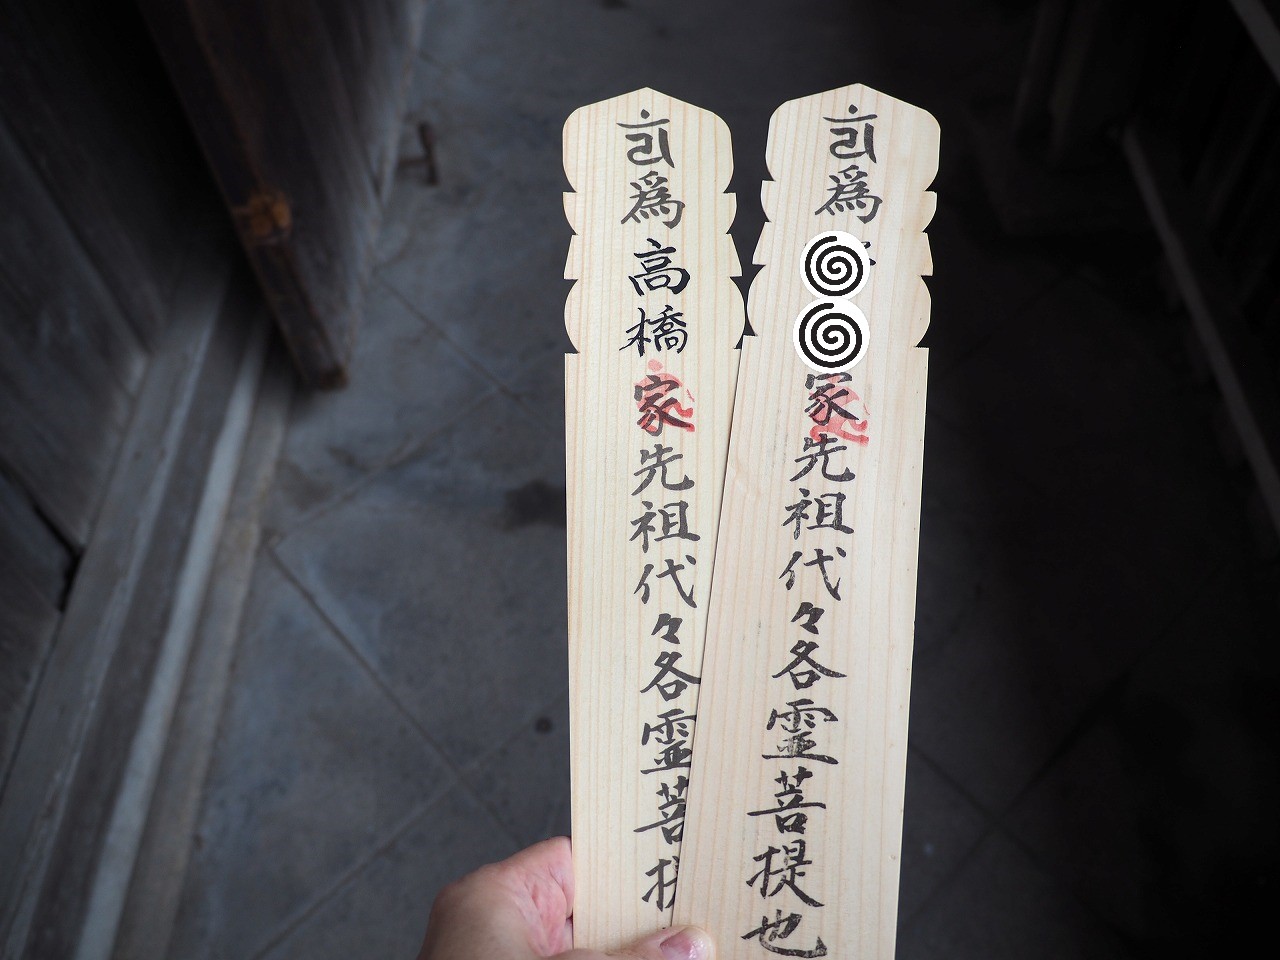 為
家先祖代々各霊菩提也
為高橋家先祖代々各霊菩